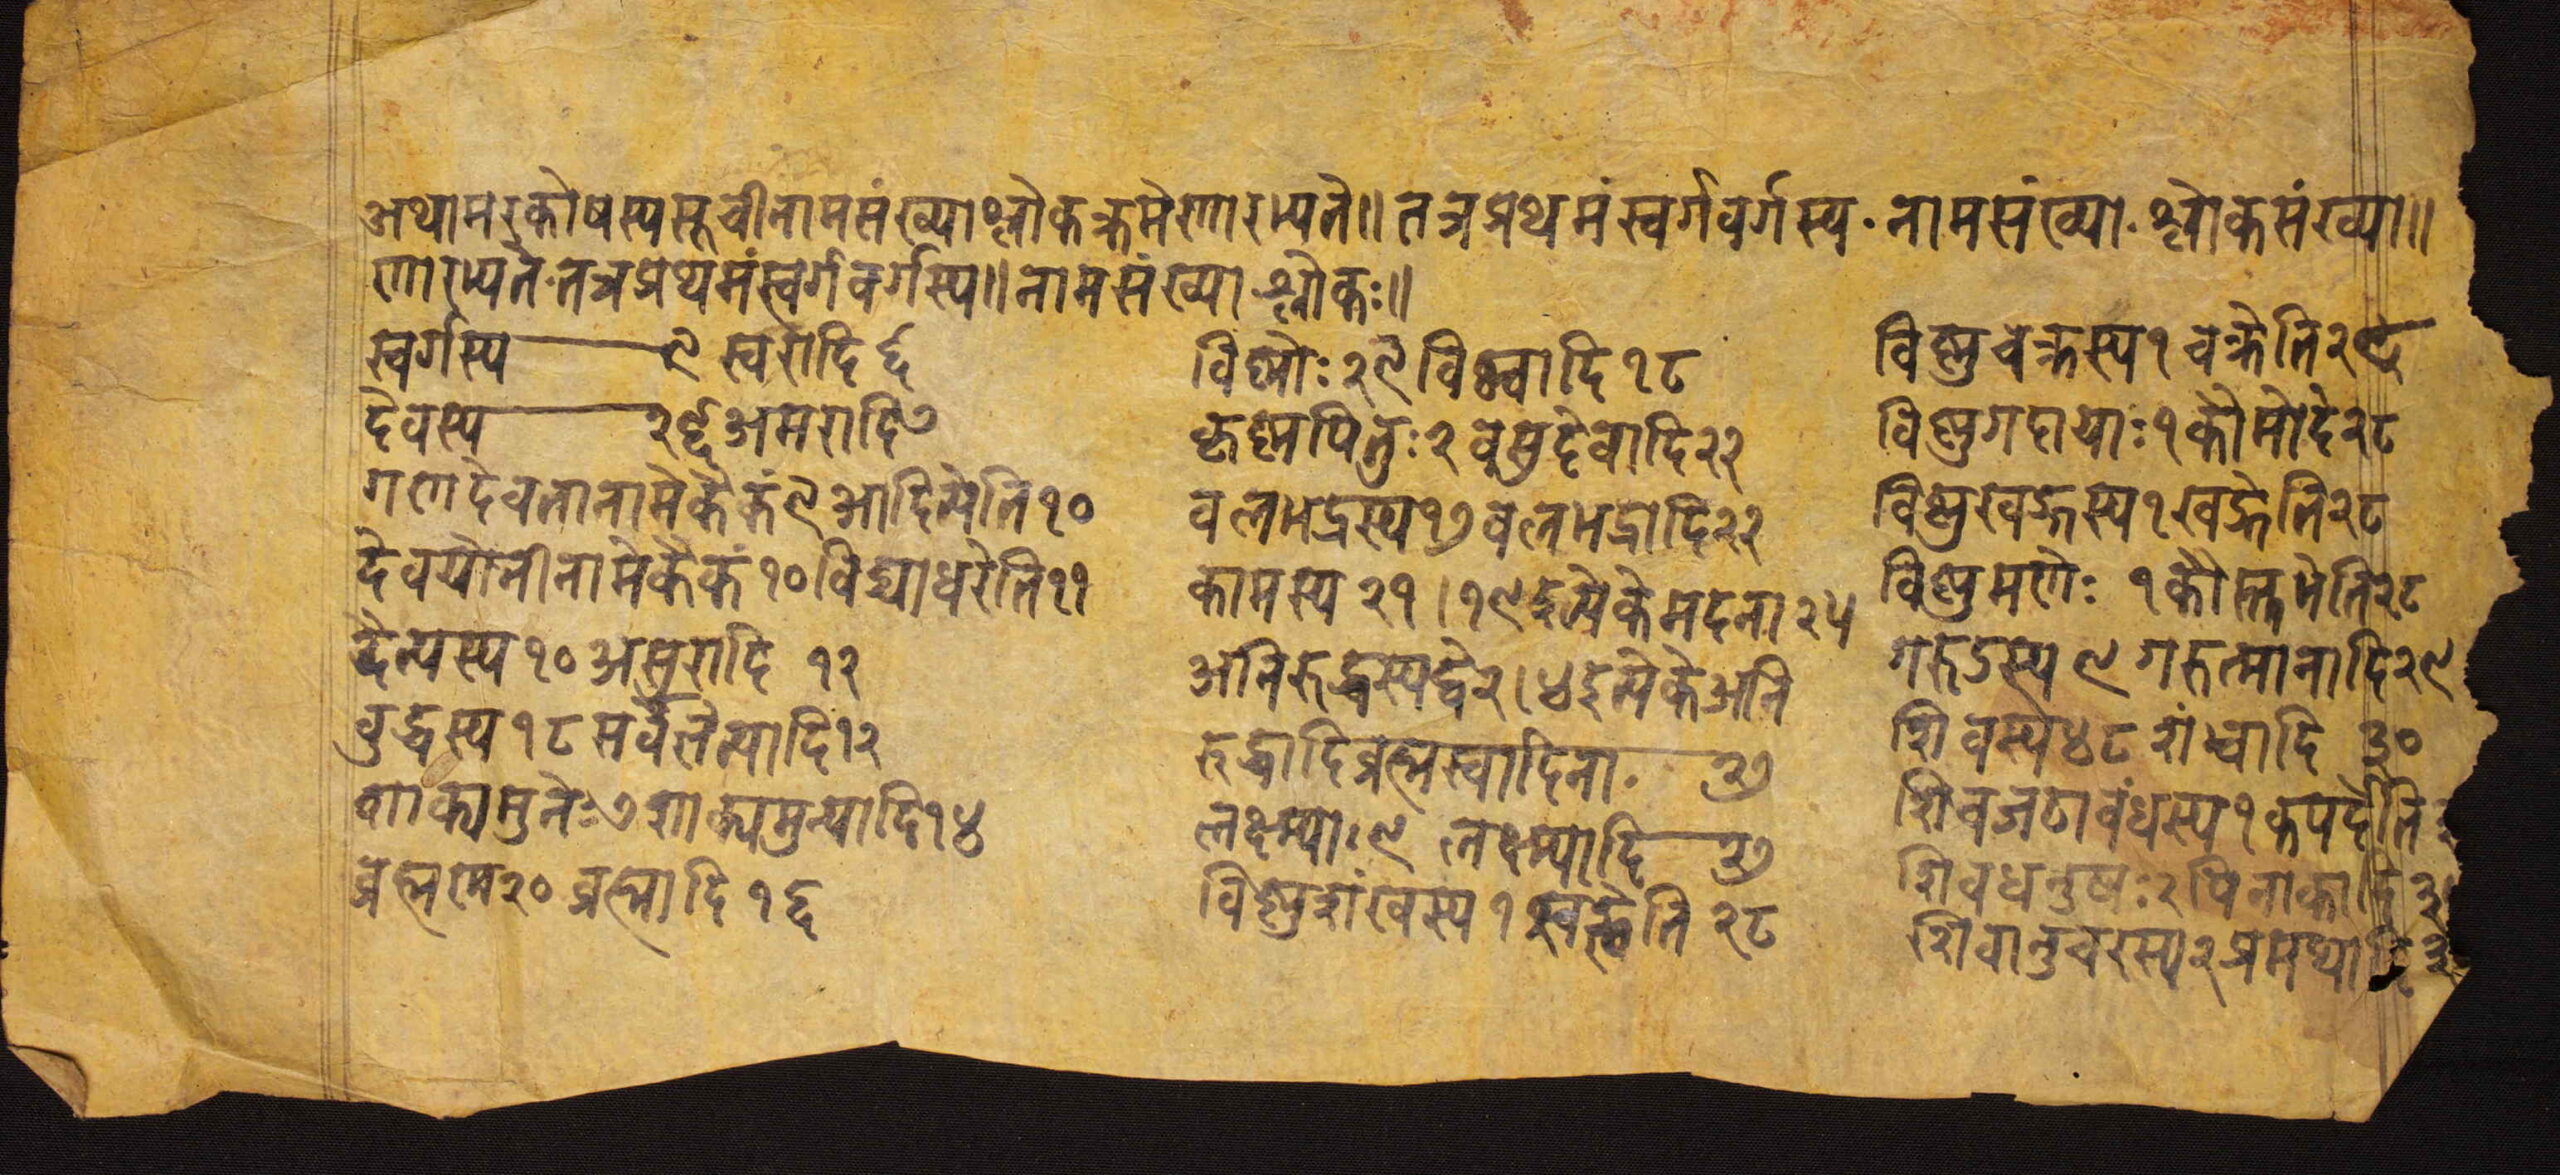 अथामरकोषस्य सूचीनामसंख्याश्लोकक्रमेणारभ्यते॥ तत्र प्रथमं स्वर्गवर्गस्य · नामसंख्या · श्लोकसंख्या॥
णारभ्यते · तत्र प्रथमं स्वर्गवर्गस्य॥ नामसंख्या श्लोकः॥
स्वर्गस्य — ९ स्वरादि ६
देवस्य — २६ अमरादि ७
गणदेवतानामेकैकं ९ आदित्येति १०
देवयोनीनामेकैकं १० विद्याधरेति ११
दैत्यस्य १० असुरादि १२
बुद्धस्य १८ सर्वज्ञेत्यादि १२
शाक्यमुनेः ७ शाक्यमुन्यादि १४
ब्रह्मणे २० ब्रह्मादि १६
विष्णोः २९ विष्ण्वादि १८
कृष्णपितुः २ वसुदेवादि २२
वलभद्रस्य १७ वलभद्रादि २२
कामस्य २१ । १९ इत्येके मदना २५
अनिरुद्धस्य द्वे २ । ४ इत्येके अनि
रुद्धादिब्रह्मस्वादिना · — २७
लक्ष्म्याः ९ लक्ष्म्यादि — २७
विष्णुशंखस्य १ २८
विष्णुचक्रस्य १ चक्रेति २८
विष्णुगदायाः १ कौमोद २८
विष्णुखड्गस्य १ खड्गेति २८
विष्णुमणेः १ कौस्तुभेति २८
गरुडस्य ९ गरुत्मानादि २९
शिवस्य ४८ शंभ्वादि ३०
शिवजटावंधस्य १ कपर्देति
शिवधनुषः २ पिनाकादि ३
शिवानुचरस्य २ प्रमथादि ३